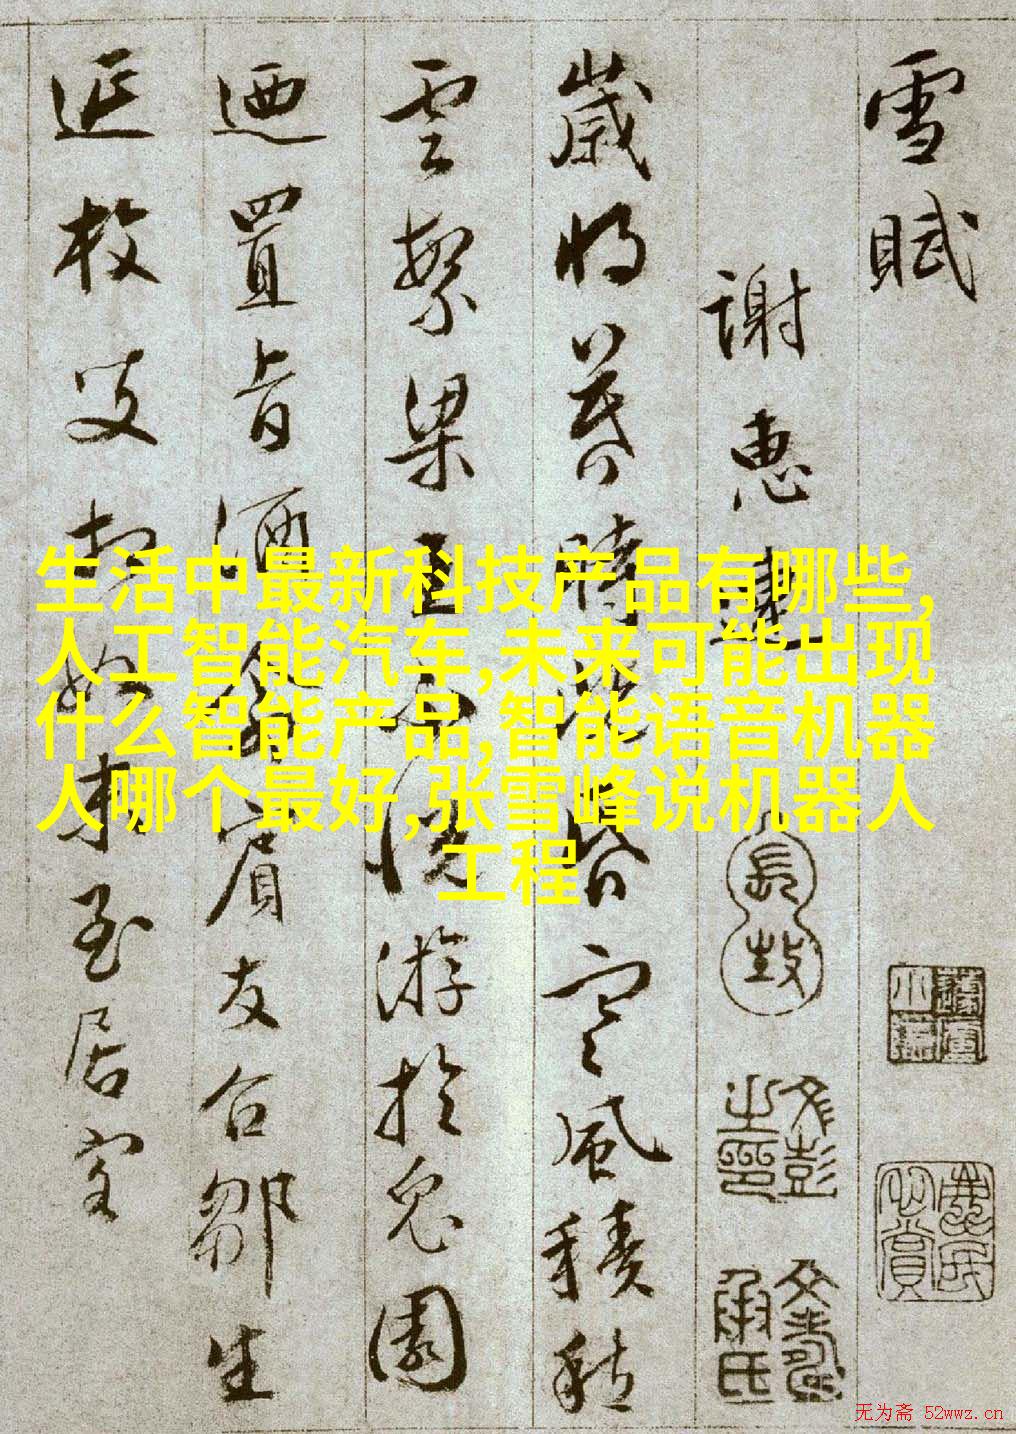 雪賦
謝惠連
歲將暮時既昏寒風積愁
雲繁梁王不悅游於兔園
迺置旨酒命賓友召鄒生
延枚叟相如末至居客
生活中最新科技产品有哪些,
人工智能汽车,未来可能出现
什么智能产品,智能语音机器
人哪个最好,张雪峰说机器人
工程
文彭之印
无为斋 52wwz.cn